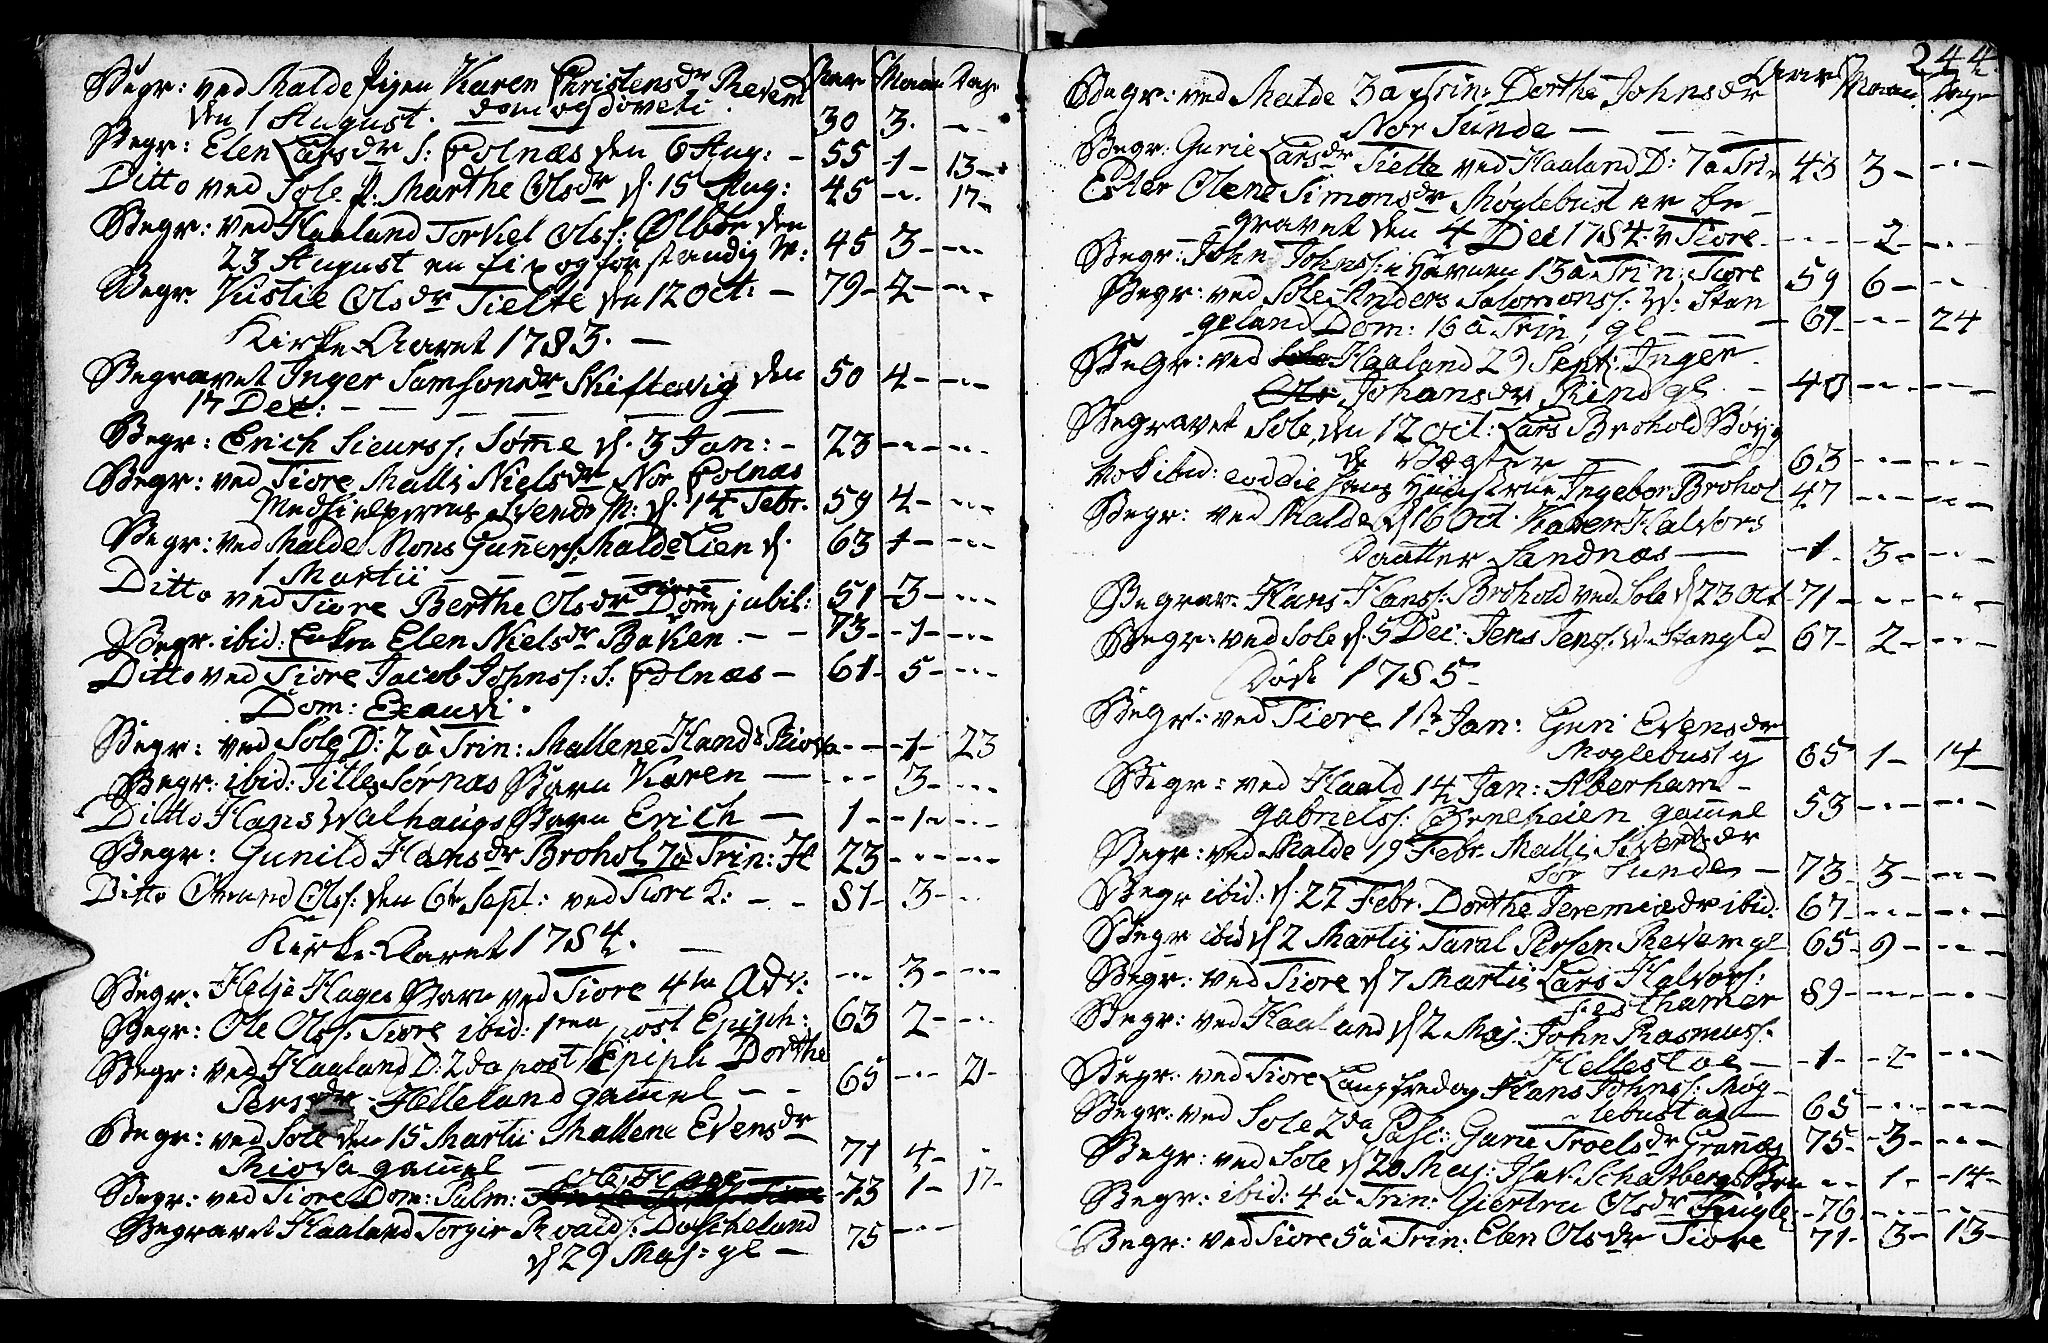 Aar Maan Dage
Begr: ved Malde Pigen Karen Christensdr Revem
den 1 August. døm og døvets. 30 3. - -
Begr: Elen Larsdr S: Colnæs den 6 Aug: - 55 - 1 - 13 -
Ditto ved Sole P. Marthe Olsdr d. 15 Aug: 45 - - 17 -
Begr: ved Haaland Torkel Olss: Ølbør den
23 August en fix og forstandig M: 45 3 - - -
Begr. Kistie Olsdr Tielte den 12 Oct: - 79 - 2 - - -
Kirke-Aaret 1783. -
Begravet Inger Samsonsdr Skiftevig den 50 4 - - -
17 Dec: - - - -
Begr: Erich Sieurss: Søme d. 3 Jan: - 23 - - - -
Begr: ved Tiore Malli Nielsdr Nor Colnæs
Medhielperens Svends M: d. 14 Febr. 59 4 - - -
Begr: ved Malde Mons Gunners: Malde Lien d. 63 1 - - -
1 Martii - - -
Ditto ved Tiore Berthe Olsdr Tiore Dom jubil: 51 - 3 - - -
Begr. ibid: Enken Elen Nielsdr Bakken - - 73 - 1 - - -
Ditto ved Tiore Jacob Johnss: S: Colnæs - 61 - 5 - - -
Dom: Exaudi.
Begr: ved Sole D: 2 à Trin: Mallene Hand: Riosa - - - 1 - 23
Begr: ibid: Titles Sørnæs Barn Karen - - - 3 - - -
Ditto Hans Walhaugs Barn Erich - 1 - - 1 - - -
Begr: Gunild Hansdr Brohol 7 à Trin: H 23 - - - -
Ditto Omund Olss: den 6te Sept: ved Tiore K: - - 81 - 3 - - -
Kirke-Aaret 1784. -
Begr: Helje Hages Barn ved Tiore 4te Adv: - - 3 - - -
Begr: Ole Olss: Tiore ibid: 1ma post Epiph: 63 2 - - -
Begr: ved Haaland D: 2da post Epiph Dorthe
Persdr Helleland gamel - - 65 - - 21 -
Begr: ved Sole den 15 Martii Mallene Evensdr
Riosa gamel - 71 4 - -
Begr: ved Tiore Dom: Palm: - 73 1 - 17 -
Begravet Haaland Torgir Roaids: Dascheland
d 29 Maj: gl - 75 - - -
244.
Aar Maan Dage
Begr: ved Malde 3 à Trin: Dorthe Johnsdr
Nor Sunde - - -
Begr: Gurie Larsdr Tielte ved Haaland D: 7 à Trin 43 3 - - - -
Ester Olene Simonsdr Møglebust er be-
gravet den 4 Dec 1784 v Tiore - - - 2 - - -
Begr: John Johnss: i Havnen 13 à Trin: Tiore 59 6 - - -
Begr: ved Sole Anders Salomonss: W: Stan
geland Dom: 16 à Trin, gl - - - 67 - - - 24
Begr: ved Haaland 29 Sept: Inger
Johansdr Rind gl - 40 - - - -
Begravet Sole, den 12 Oct: Lars Brohold Bøyg
de Vægter - - 63 - - - -
Nok ibid: eoddie hans Huustrue Ingebor Brohol 47 - - - -
Begr: ved Malde d 16 Oct. Karen Halvors
Daatter Sandnæs - - 1 - 3 - - -
Begrav: Hans Hanss: Brohold ved Sole d 23 Oct - 71 - - - -
Begr: ved Sole d. 5 Dec: Jens Jenss: W Stangld 67 - 2 - - -
Døde 1785 -
Begr: ved Tiore 1ste Jan: Guri Evensdr
Møglebust g 65 1 - 14
Begr: ved Haald 14 Jan: Aberham
gabrielss: Ørnehaien gamel 53 - - - -
Begr: ved Malde 19 Febr. Malli Sivertsdr
Sør Sunde - 73 - 3 - - -
Begr ibid: d. 22 Febr. Dorthe Jeremiædr ibid: 67 - - - -
Begr ibid d 2 Martii Taral Persen Revem gl 65 - 9 - - -
Begr: ved Tiore d 7 Martii Lars Halvors:
Fedthamer 89 - - - -
Begr: ved Haaland d 2 Maj: John Rasmuss:
Hellestoe - - 1 - - 2 - - -
Begr: ved Tiore Langfredag Hans Johnss: Møg-
lebust ag - 65 - - - -
Begr: ved Sole 2da Pasc: Gurie Troelsdr Granæs 75 - 3 - - -
Begr: ved Sole d 20 Maj: Isak Schatbergs Barn - - 1 - - 14 -
Begr: ibid: 4 à Trin: Giertru Olsdr Fugle: - 76 - - - -
Begr: ved Tiore 5 à Trin: Elen Olsdr Tiore 71 - 3 - 13 -